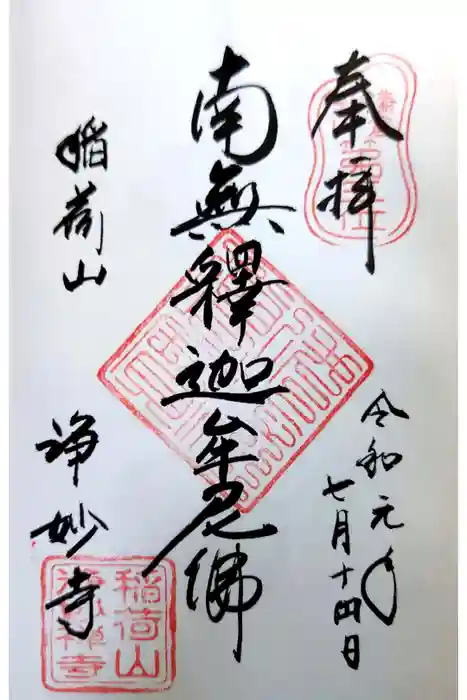 奉拝
令和元年
七月十四日
南無釋迦牟尼佛
稲荷山
浄妙寺
稲荷山